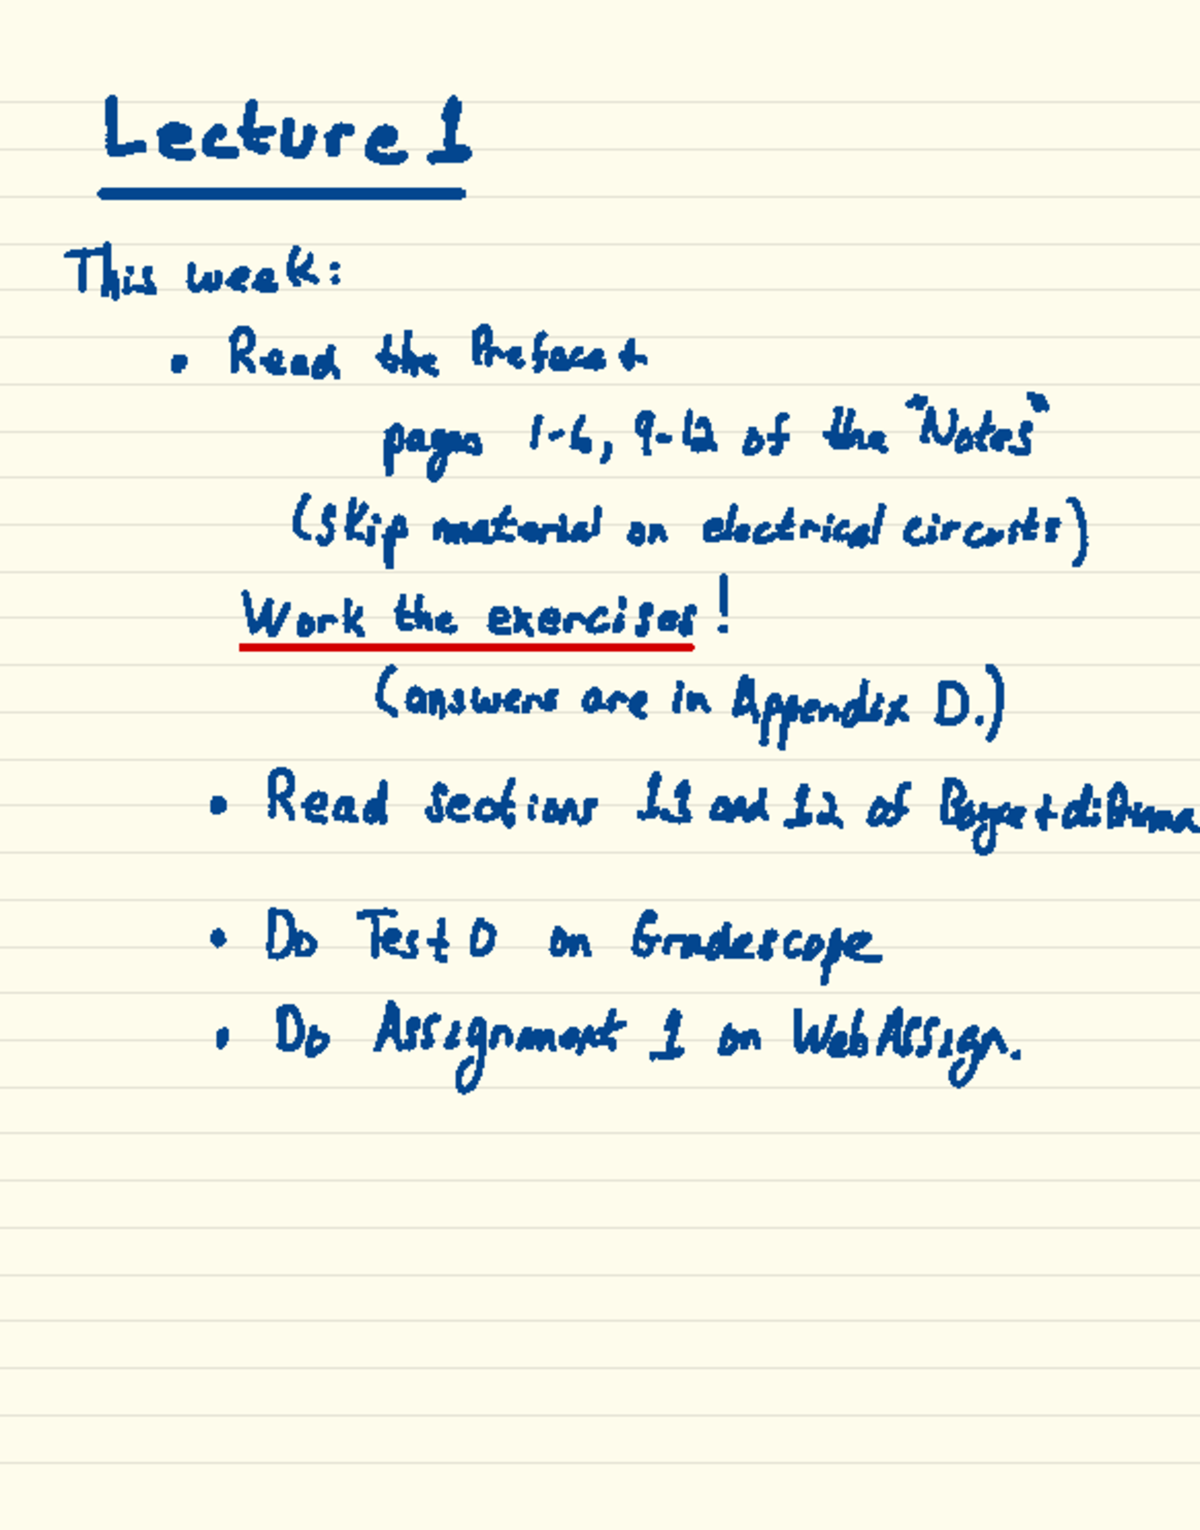 Lecture 1
This week:
• Read the Preface +
pages 1-6, 9-12 of the "Notes"
(skip material on electrical circuits)
Work the exercises!
(answers are in Appendix D.)
• Read sections 1.1 and 1.2 of Boyce + diPrima
• Do Test 0 on Gradescope
• Do Assignment 1 on WebAssign.